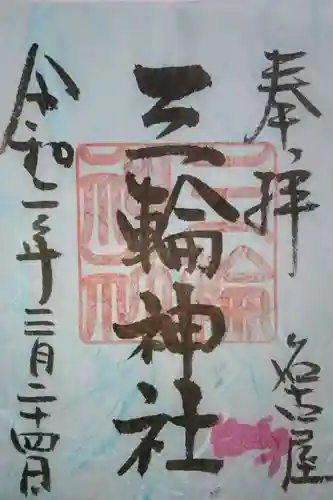 奉拝
名古屋
三輪神社
令和二年三月二十四日
三輪神社